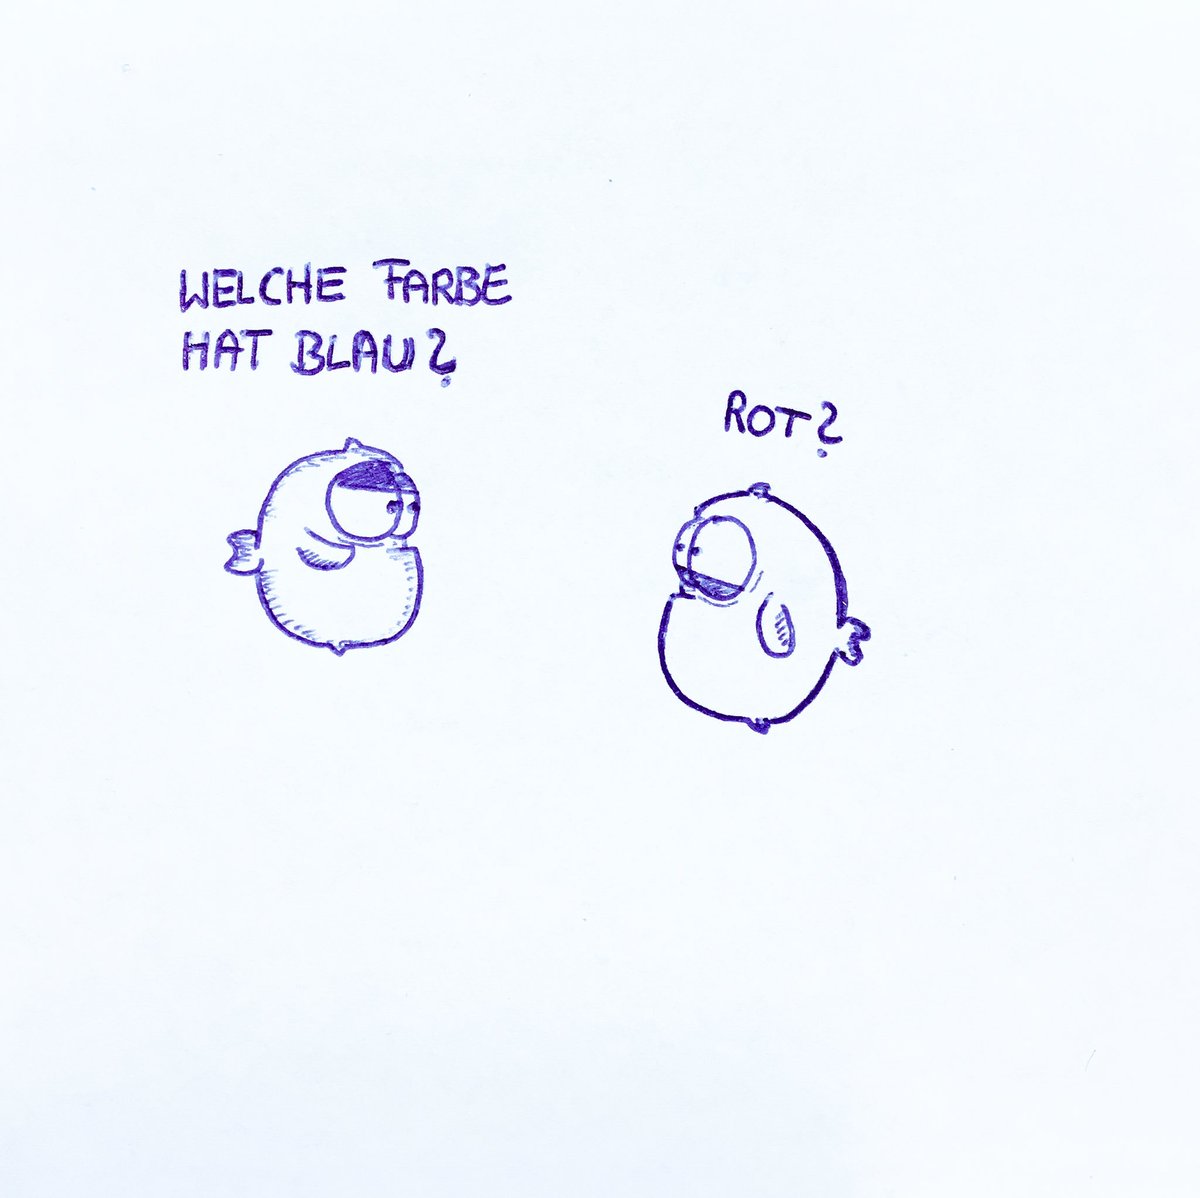 WELCHE FARBE
HAT BLAU?
ROT?